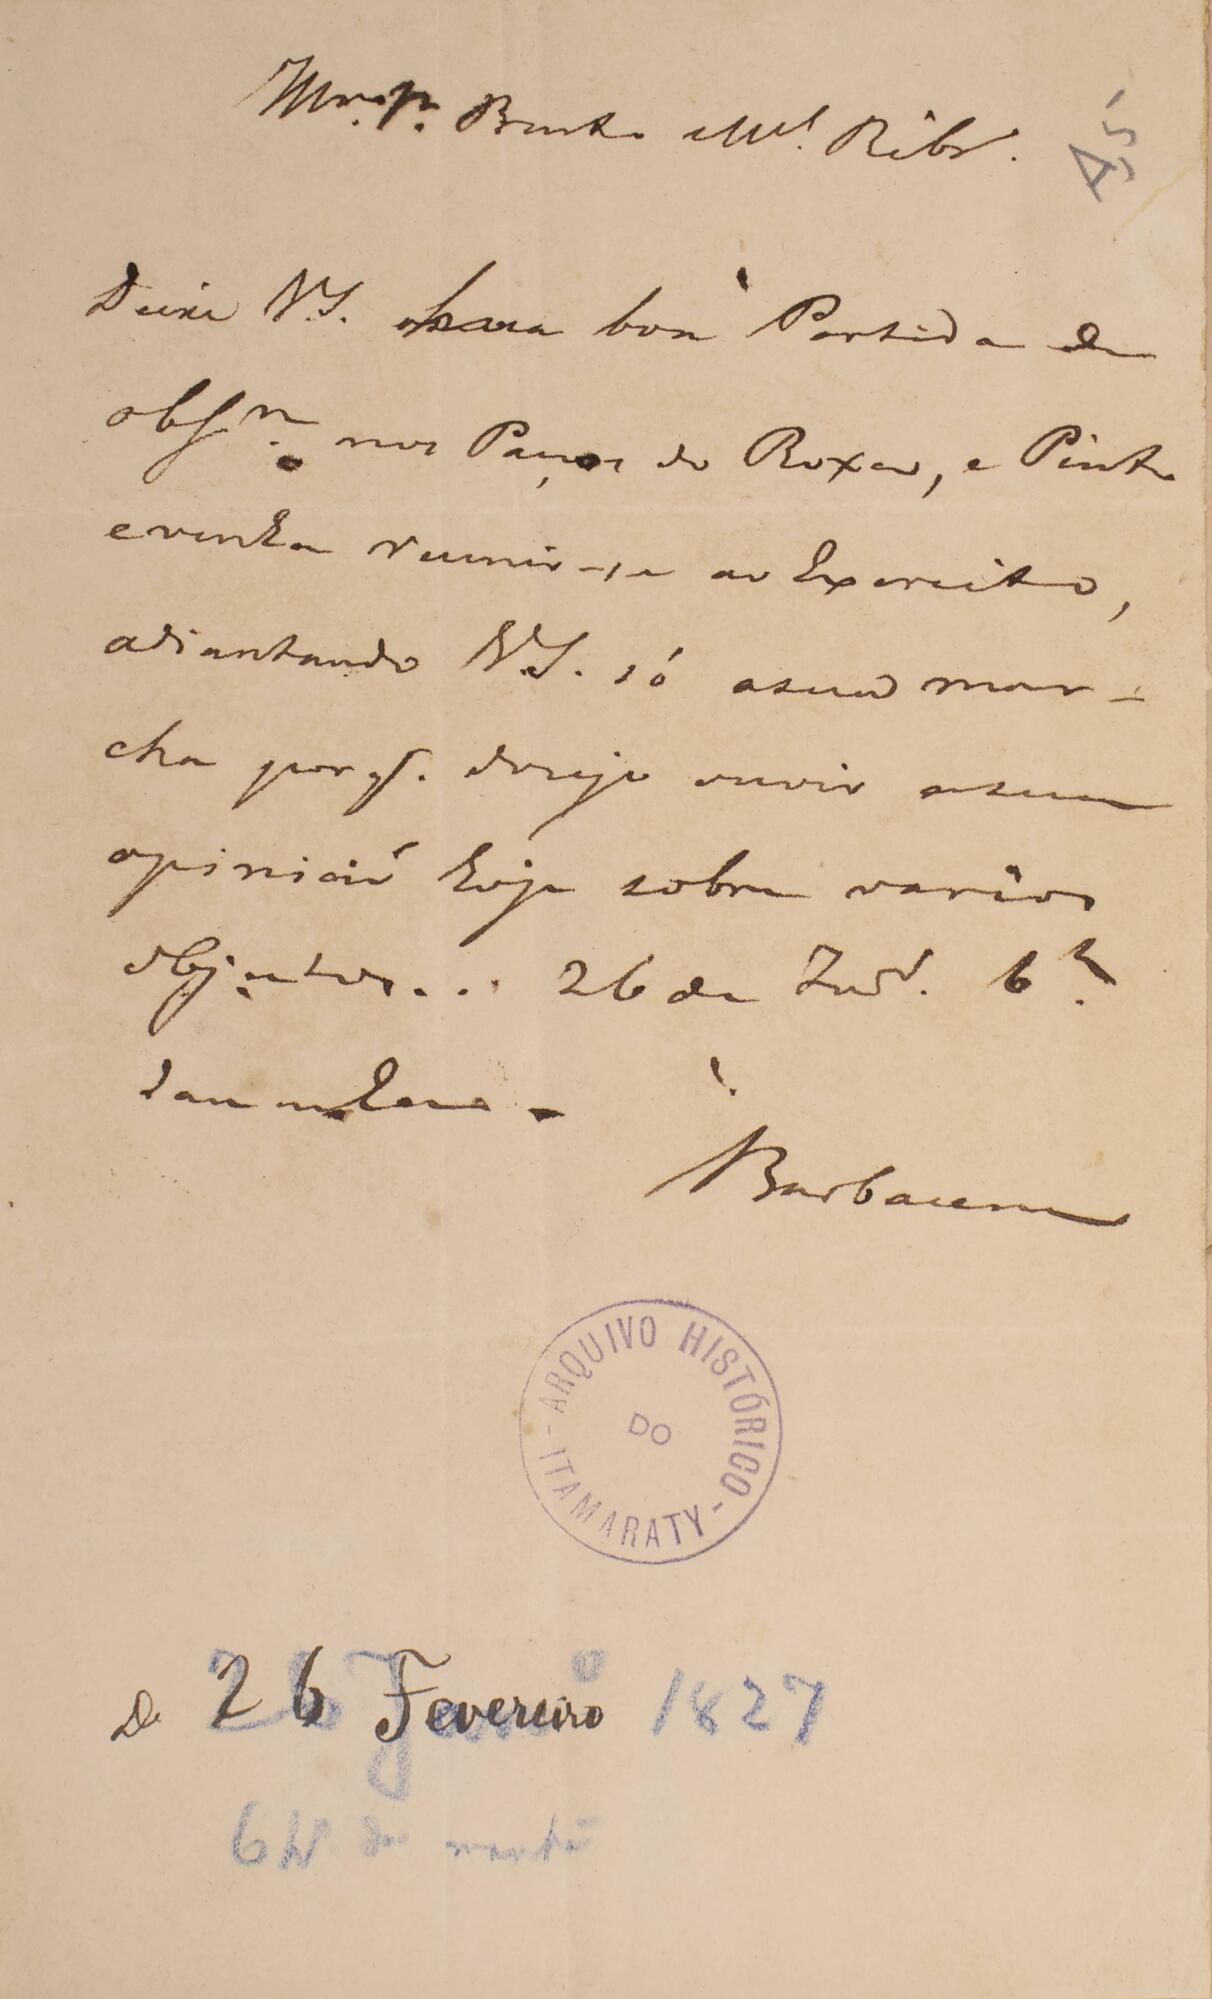 Bento Mel. Ribr.
Deixe V.S. huma boa Partida de
obsm. nos Paços do Roxedo, e Pinto
e venha reunir-se ao Exercito,
adiantando V.S. só a sua mar-
cha por q. dezejo ouvir a sua
opinião hoje sobre varios
objectos... 26 de 6 h.
da manham.
Barbacena
ARQUIVO HISTÓRICO
DO
ITAMARATY
De 26 Fevereiro 1827
6 h. da manhã